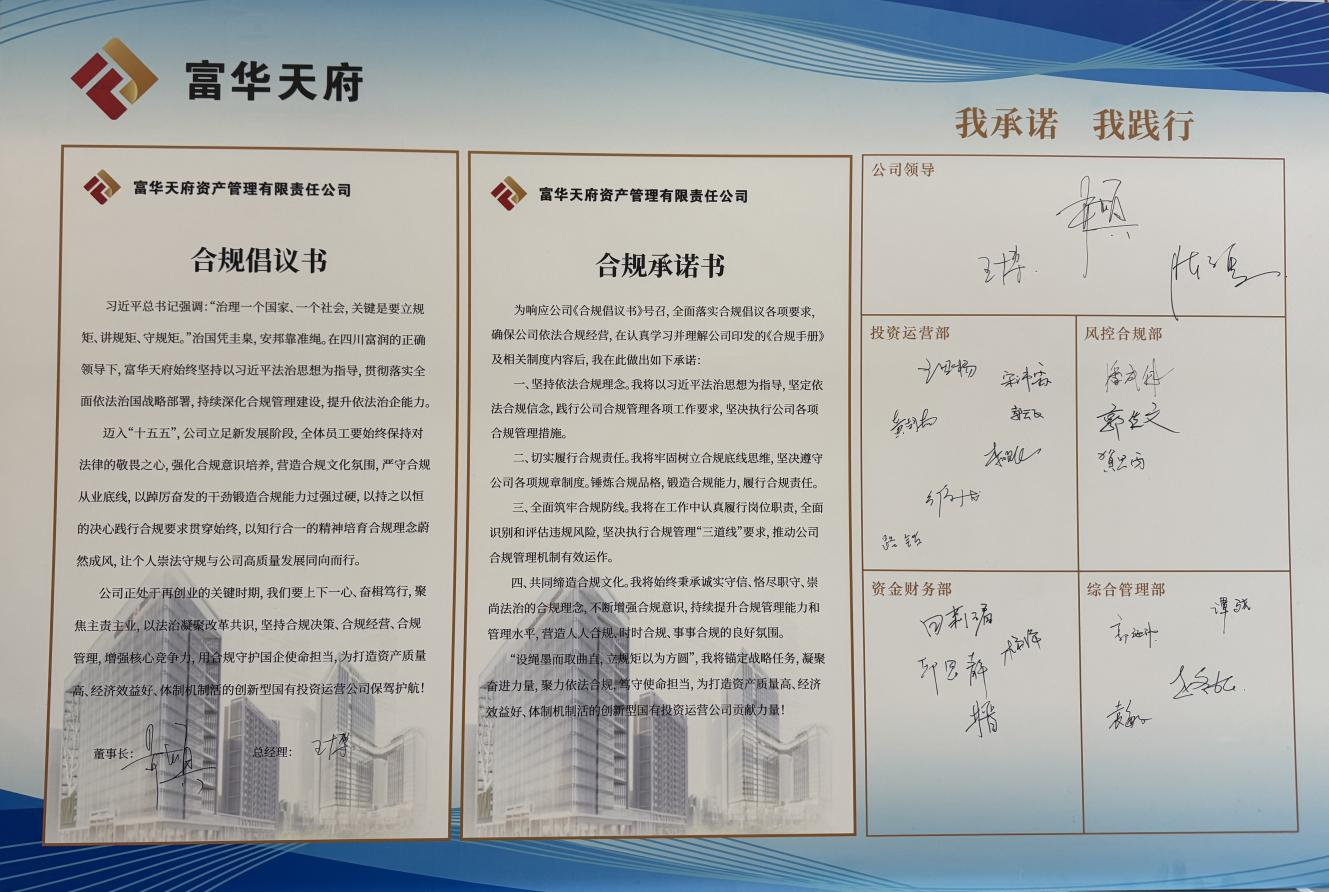 富华天府
我承诺 我践行
富华天府资产管理有限责任公司
合规倡议书
习近平总书记强调:“治理一个国家、一个社会, 关键是要立规
矩、讲规矩、守规矩。”治国凭圭臬, 安邦靠准绳。在四川富润的正确
领导下, 富华天府始终坚持以习近平法治思想为指导, 贯彻落实全
面依法治国战略部署, 持续深化合规管理建设, 提升依法治企能力。
迈入“十五五”, 公司立足新发展阶段, 全体员工要始终保持对
法律的敬畏之心, 强化合规意识培养, 营造合规文化氛围, 严守合规
从业底线, 以踔厉奋发的干劲锻造合规能力过强过硬, 以持之以恒
的决心践行合规要求贯穿始终, 以知行合一的精神培育合规理念蔚
然成风, 让个人崇法守规与公司高质量发展同向而行。
公司正处于再创业的关键时期, 我们要上下一心、奋楫笃行, 聚
焦主责主业, 以法治凝聚改革共识, 坚持合规决策、合规经营、合规
管理, 增强核心竞争力, 用合规守护国企使命担当, 为打造资产质量
高、经济效益好、体制机制活的创新型国有投资运营公司保驾护航!
董事长:
总经理: 王博
富华天府资产管理有限责任公司
合规承诺书
为响应公司《合规倡议书》号召, 全面落实合规倡议各项要求,
确保公司依法合规经营, 在认真学习并理解公司印发的《合规手册》
及相关制度内容后, 我在此做出如下承诺:
一、坚持依法合规理念。我将以习近平法治思想为指导, 坚定依
法合规信念, 践行公司合规管理各项工作要求, 坚决执行公司各项
合规管理措施。
二、切实履行合规责任。我将牢固树立合规底线思维, 坚决遵守
公司各项规章制度。锤炼合规品格, 锻造合规能力, 履行合规责任。
三、全面筑牢合规防线。我将在工作中认真履行岗位职责, 全面
识别和评估违规风险, 坚决执行合规管理“三道线”要求, 推动公司
合规管理机制有效运作。
四、共同缔造合规文化。我将始终秉承诚实守信、恪尽职守、崇
尚法治的合规理念, 不断增强合规意识, 持续提升合规管理能力和
管理水平, 营造人人合规、时时合规、事事合规的良好氛围。
“设绳墨而取曲直, 立规矩以为方圆”, 我将锚定战略任务, 凝聚
奋进力量, 聚力依法合规, 笃守使命担当, 为打造资产质量高、经济
效益好、体制机制活的创新型国有投资运营公司贡献力量!
公司领导
王博
投资运营部
风控合规部
资金财务部
邱思静
综合管理部